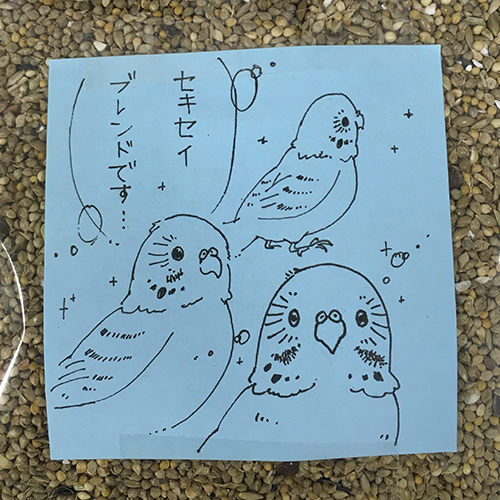 セキセイ
ブレンドです…